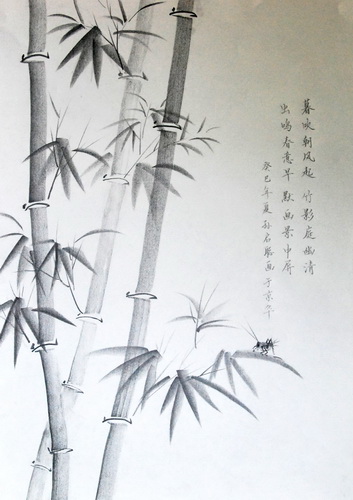 暮吹朝风起 竹影庭幽清
虫鸣春意早 默画景中屏
癸巳年夏 孙石磊画于京华